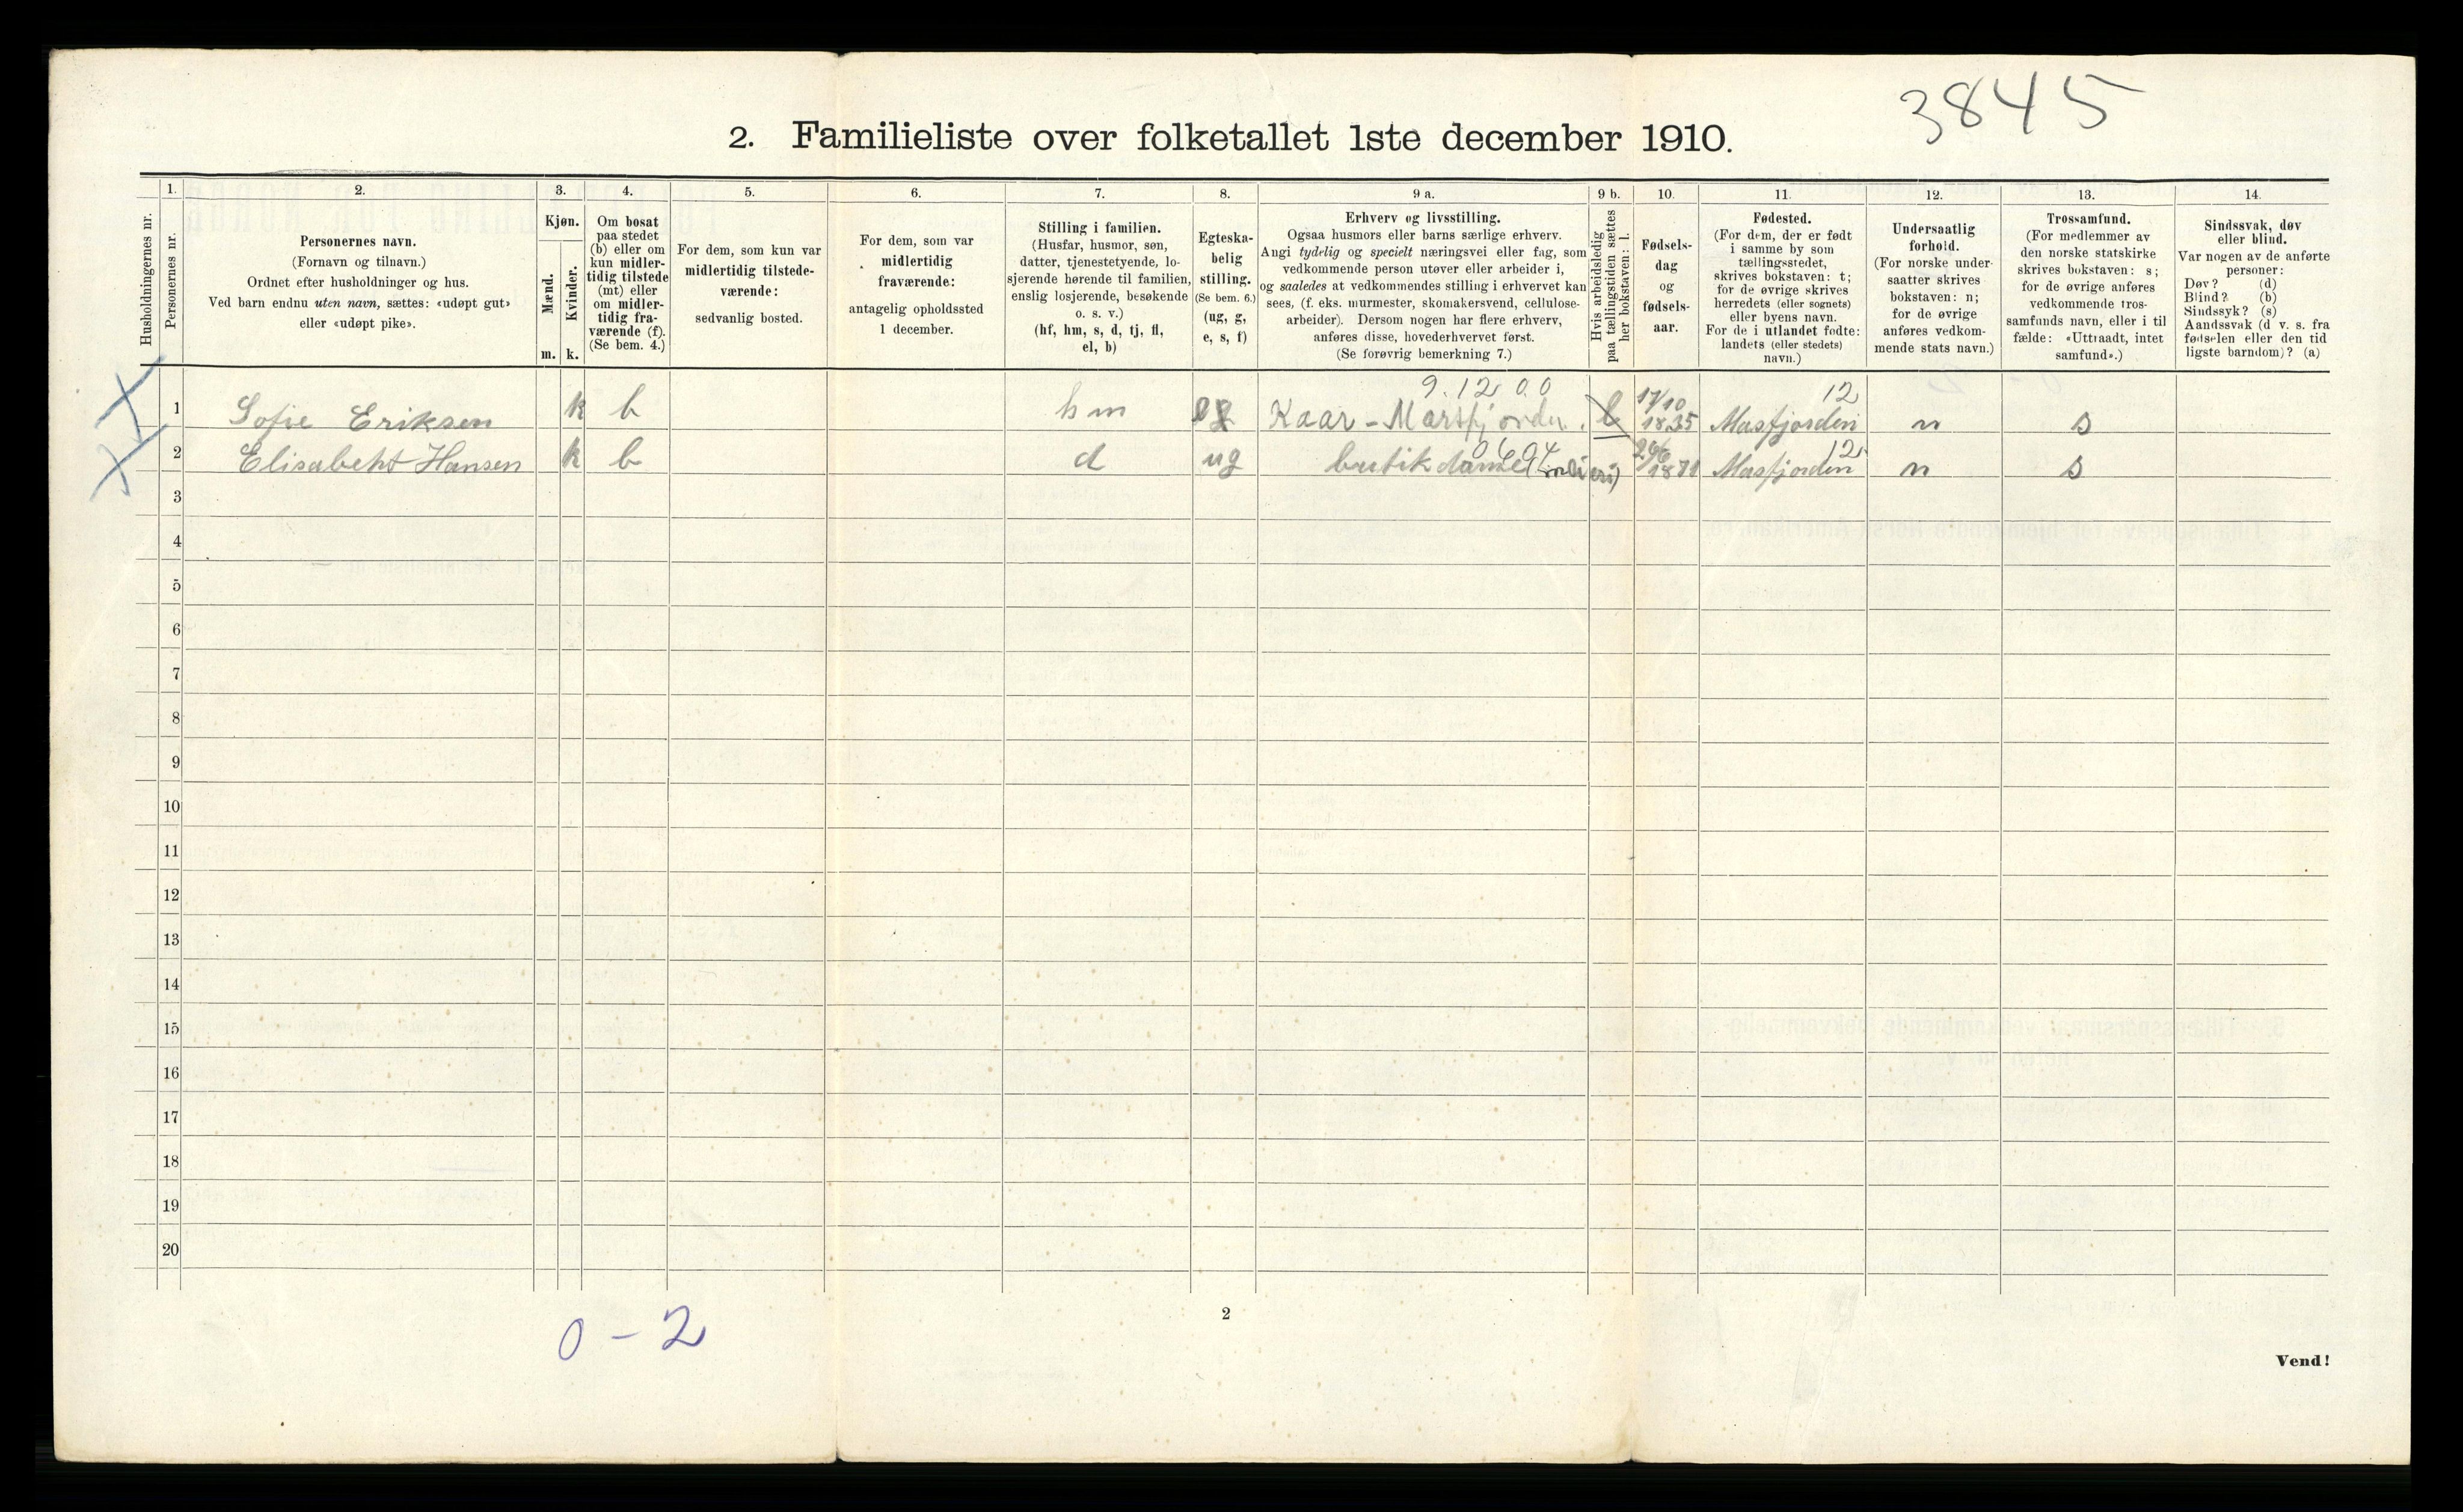 3845
2. Familieliste over folketallet 1ste december 1910.
Husholdningernes nr.
1.
Personernes nr.
2.
Personernes navn.
(Fornavn og tilnavn.)
Ordnet efter husholdninger og hus.
Ved barn endnu uten navn, sættes: «udøpt gut»
eller «udøpt pike».
3.
Kjøn.
Mænd.
Kvinder.
m. k.
4.
Om bosat
paa stedet
(b) eller om
kun midler-
tidig tilstede
(mt) eller
om midler-
tidig fra-
værende (f).
(Se bem. 4.)
5.
For dem, som kun var
midlertidig tilstede-
værende:
sedvanlig bosted.
6.
For dem, som var
midlertidig
fraværende:
antagelig opholdssted
1 december.
7.
Stilling i familien.
(Husfar, husmor, søn,
datter, tjenestetyende, lo-
sjerende hørende til familien,
enslig losjerende, besøkende
o. s. v.)
(hf, hm, s, d, tj, fl,
el, b)
8.
Egteska-
belig
stilling.
(Se bem. 6.)
(ug, g,
e, s, f)
9 a.
Erhverv og livsstilling.
Ogsaa husmors eller barns særlige erhverv.
Angi tydelig og specielt næringsvei eller fag, som
vedkommende person utøver eller arbeider i,
og saaledes at vedkommendes stilling i erhvervet kan
sees, (f. eks. murmester, skomakersvend, cellulose-
arbeider). Dersom nogen har flere erhverv,
anføres disse, hovederhvervet først.
(Se forøvrig bemerkning 7.)
9 b.
Hvis arbeidsledig
paa tællingstiden sættes
her bokstaven: l.
10.
Fødsels-
dag
og
fødsels-
aar.
11.
Fødested.
(For dem, der er født
i samme by som
tællingsstedet,
skrives bokstaven: t;
for de øvrige skrives
herredets (eller sognets)
eller byens navn.
For de i utlandet fødte:
landets (eller stedets)
navn.)
12.
Undersaatlig
forhold.
(For norske under-
saatter skrives
bokstaven: n;
for de øvrige
anføres vedkom-
mende stats navn.)
13.
Trossamfund.
(For medlemmer av
den norske statskirke
skrives bokstaven: s;
for de øvrige anføres
vedkommende tros-
samfunds navn, eller i til
fælde: «Uttraadt, intet
samfund».)
14.
Sindssvak, døv
eller blind.
Var nogen av de anførte
personer:
Døv? (d)
Blind? (b)
Sindssyk? (s)
Aandssvak (d v. s. fra
fødselen eller den tid
ligste barndom)? (a)
9.12.00 12
1 Sofie Eriksen k b hm Kaar - 17/10 1835 Masfjorden n s
12
2 Elisabeht Hansen k b d ug butikdame 1871 Masfjorden n s
3
4
5
6
7
8
9
10
11
12
13
14
15
16
17
18
19
20
0 - 2
2
Vend!